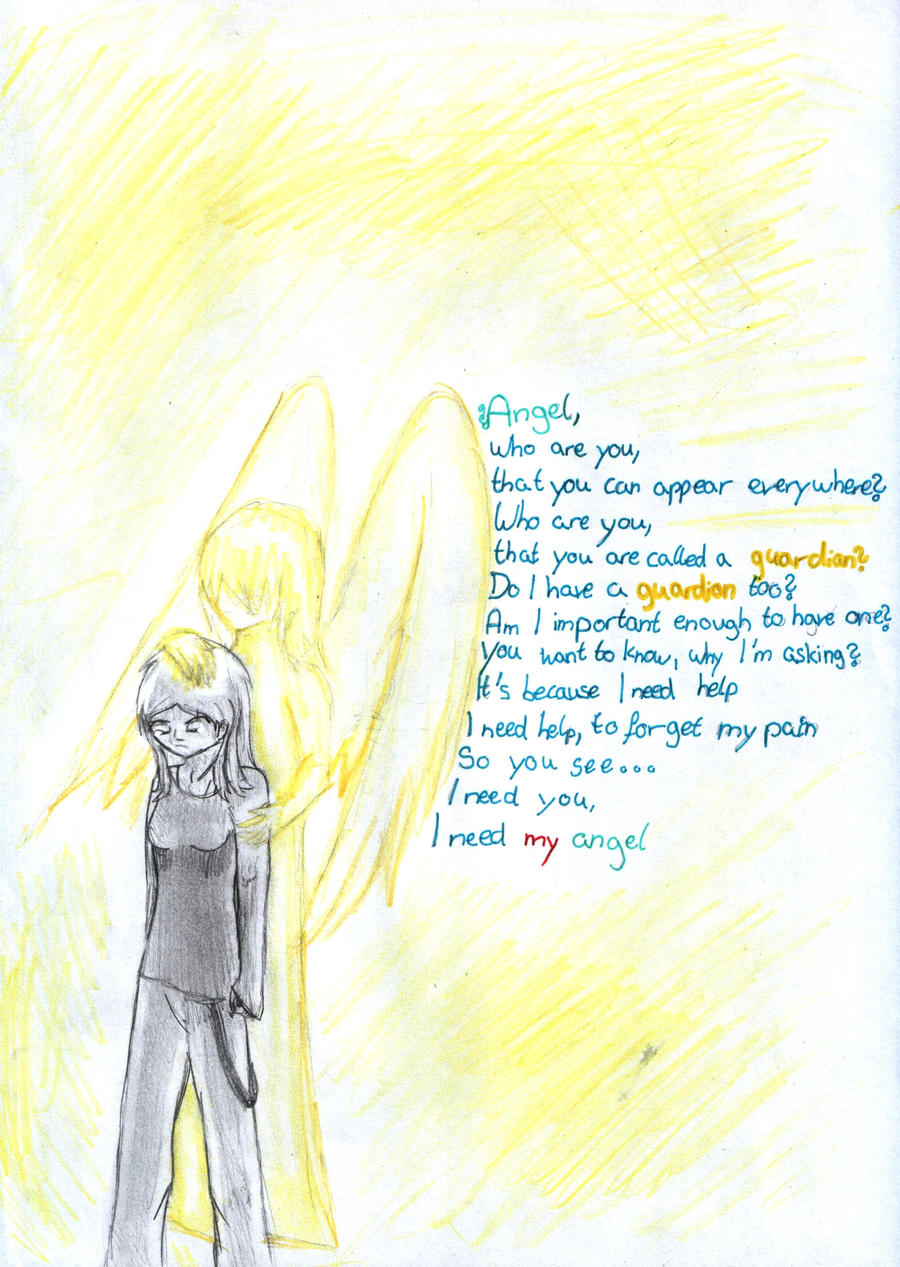 Angel,
who are you,
that you can appear everywhere?
Who are you,
that you are called a guardian?
Do I have a guardian too?
Am I important enough to have one?
You want to know, why I'm asking?
It's because I need help
I need help, to forget my pain
So you see...
I need you,
I need my angel